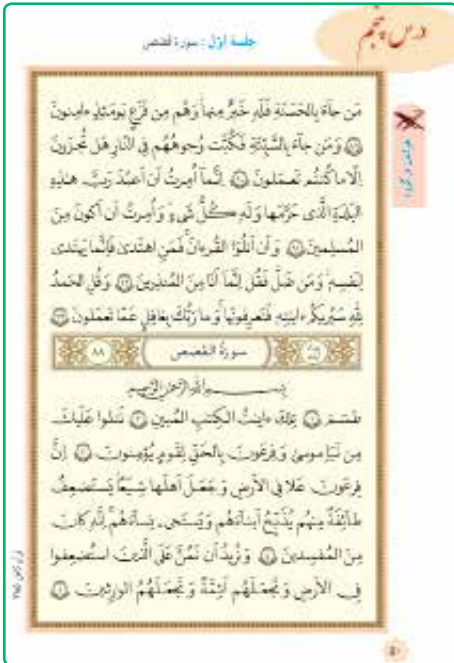 درس پنجم
جلسه اوّل : سورهٔ قصص
مَن جاءَ بِالحَسَنَةِ فَلَهُ خَيرٌ مِنها وَهُم مِن فَزَعٍ يَومَئِذٍ ءامِنونَ
﴿٨٩﴾ وَمَن جاءَ بِالسَّيِّئَةِ فَكُبَّت وُجوهُهُم فِي النّارِ هَل تُجزَونَ
اِلّا ما كُنتُم تَعمَلونَ ﴿٩٠﴾ اِنَّما اُمِرتُ اَن اَعبُدَ رَبَّ هٰذِهِ
البَلدَةِ الَّذي حَرَّمَها وَلَهُ كُلُّ شَيءٍ وَاُمِرتُ اَن اَكونَ مِنَ
المُسلِمينَ ﴿٩١﴾ وَاَن اَتلُوَا القُرءانَ فَمَنِ اهتَدىٰ فَاِنَّما يَهتَدي
لِنَفسِهِ وَمَن ضَلَّ فَقُل اِنَّما اَنَا مِنَ المُنذِرينَ ﴿٩٢﴾ وَقُلِ الحَمدُ
لِلّٰهِ سَيُريكُم ءايٰتِهِ فَتَعرِفونَها وَما رَبُّكَ بِغافِلٍ عَمّا تَعمَلونَ ﴿٩٣﴾
سورة القصص ٨٨
بِسمِ اللهِ الرَّحمٰنِ الرَّحيمِ
طٰسٓمٓ ﴿١﴾ تِلكَ ءايٰتُ الكِتٰبِ المُبينِ ﴿٢﴾ نَتلوا عَلَيكَ
مِن نَبَاِ موسىٰ وَفِرعَونَ بِالحَقِّ لِقَومٍ يُؤمِنونَ ﴿٣﴾ اِنَّ
فِرعَونَ عَلا فِي الاَرضِ وَجَعَلَ اَهلَها شِيَعًا يَستَضعِفُ
طائِفَةً مِنهُم يُذَبِّحُ اَبناءَهُم وَيَستَحيي نِساءَهُم اِنَّهُ كانَ
مِنَ المُفسِدينَ ﴿٤﴾ وَنُريدُ اَن نَمُنَّ عَلَى الَّذينَ استُضعِفوا
فِي الاَرضِ وَنَجعَلَهُم اَئِمَّةً وَنَجعَلَهُمُ الوارِثينَ ﴿٥﴾